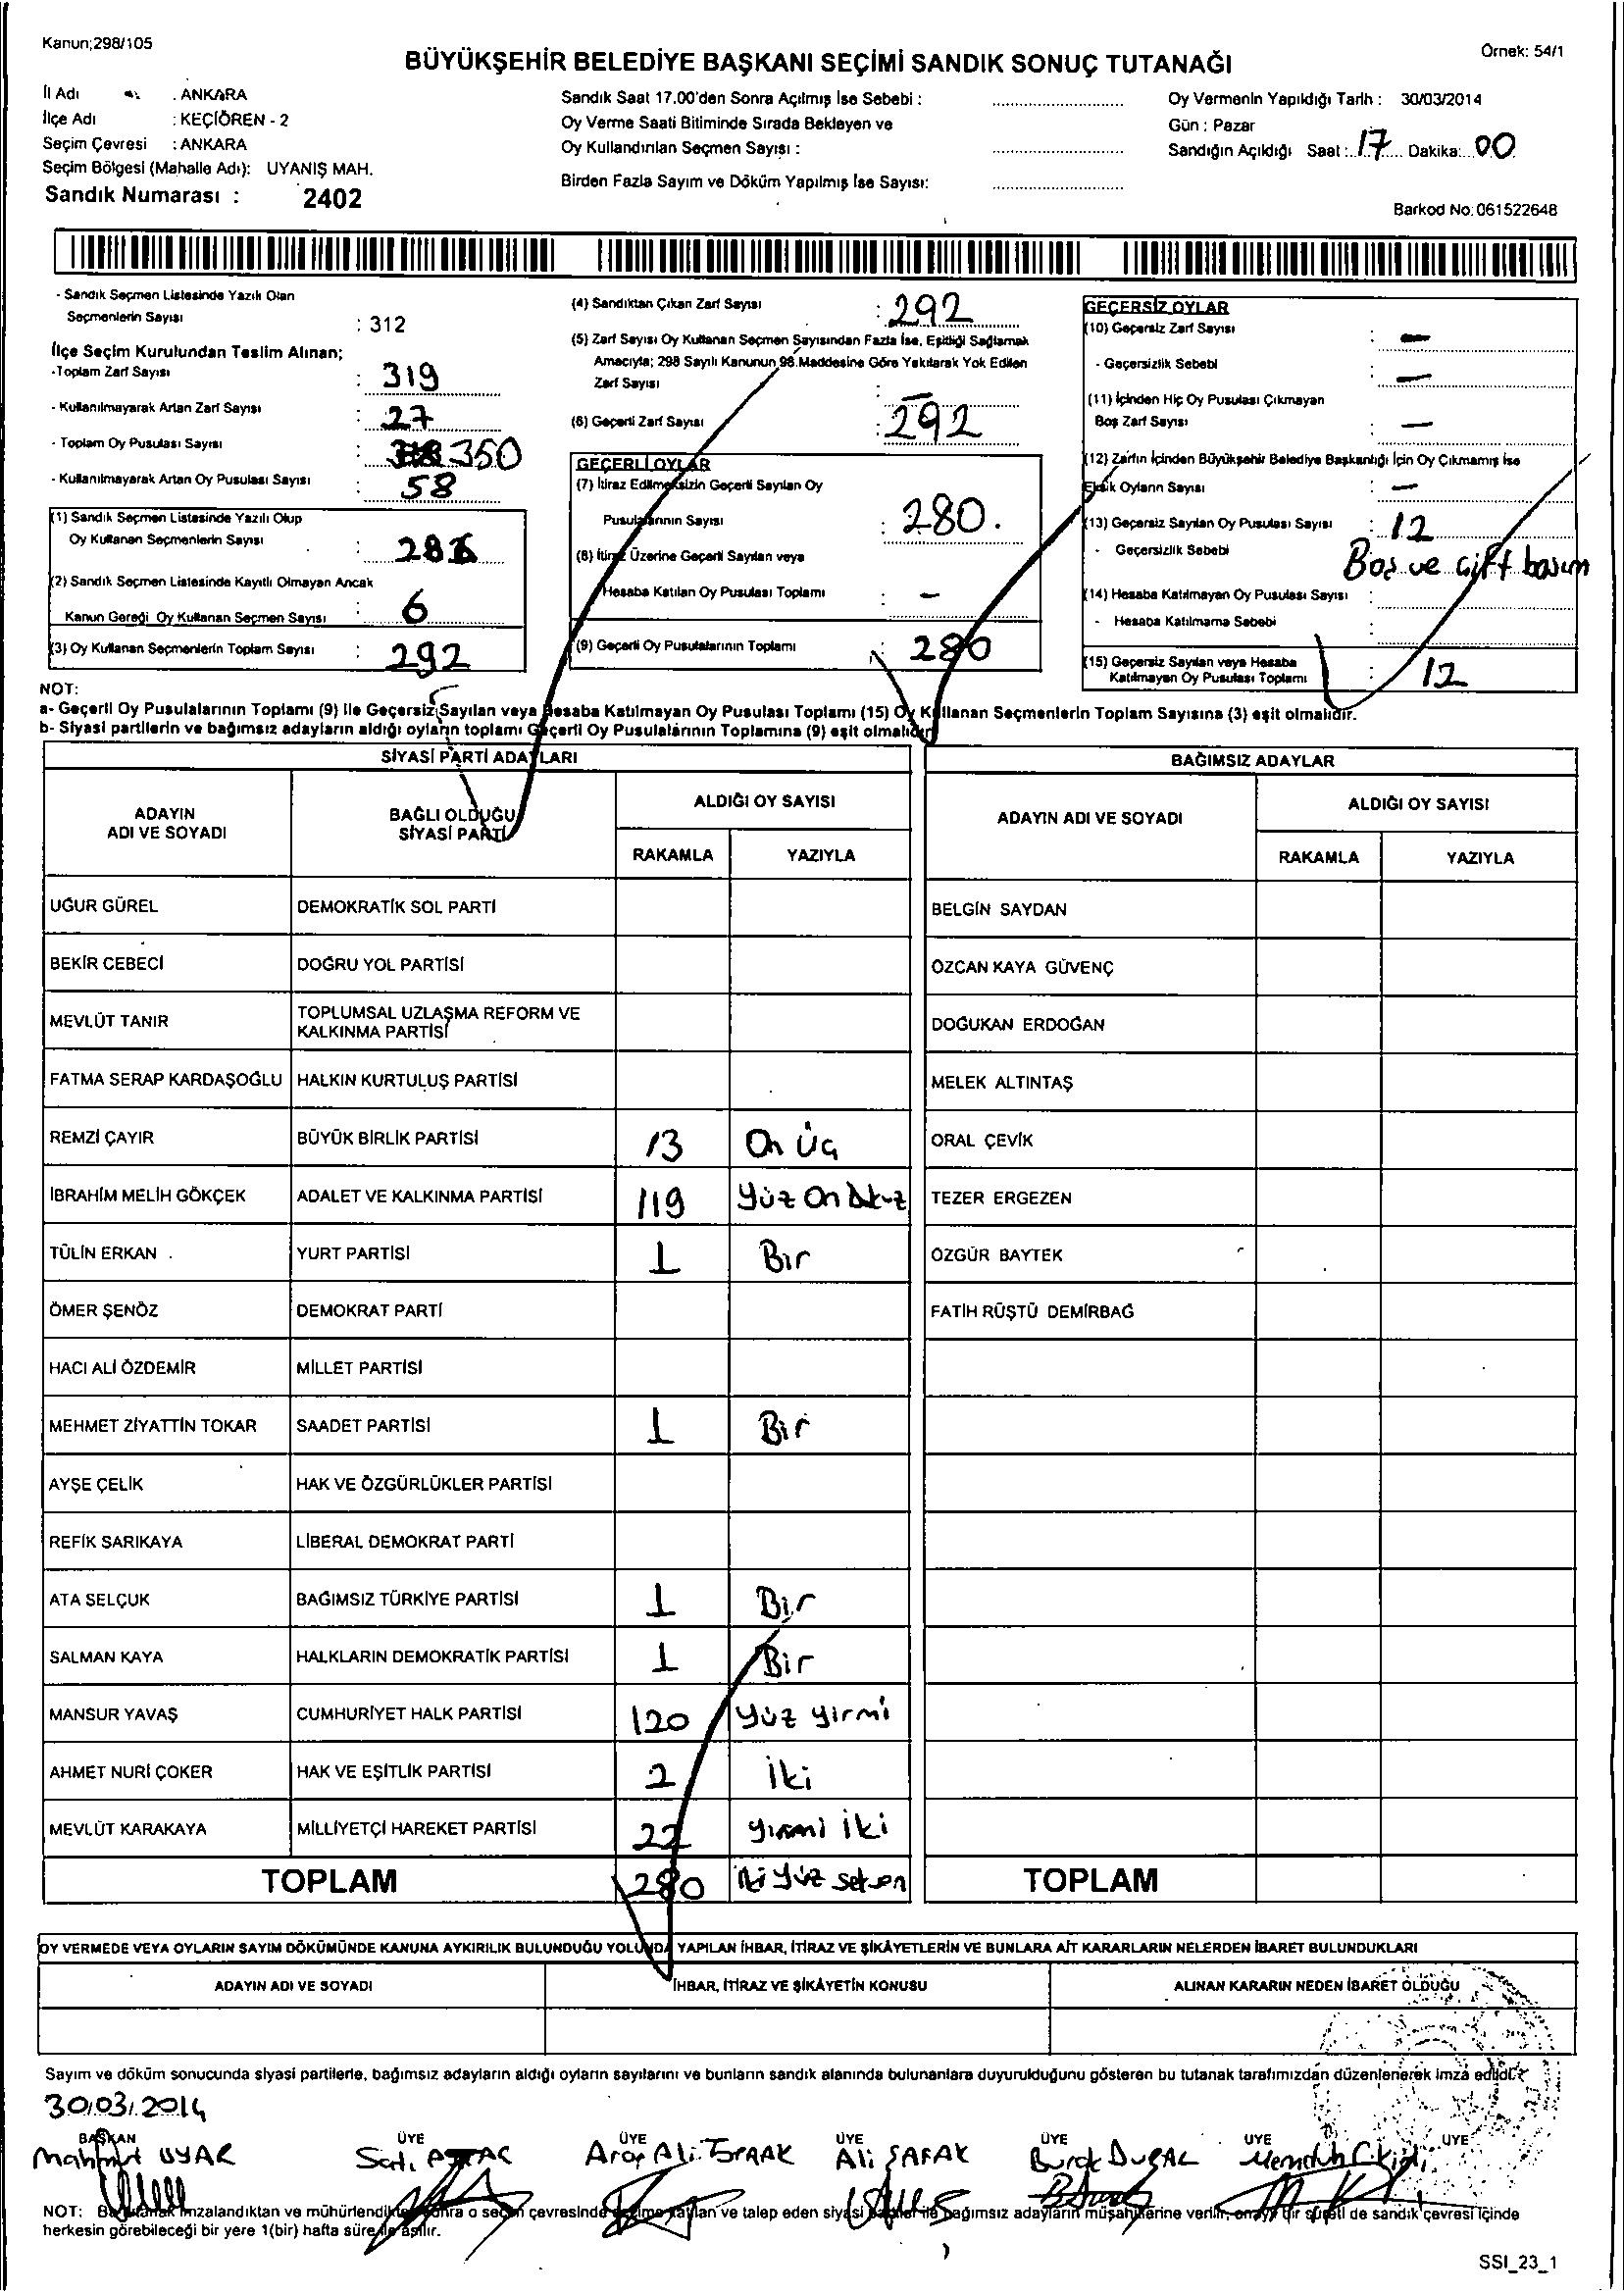 Kanun;298/105
Örnek: 54/1
BÜYÜKŞEHİR BELEDİYE BAŞKANI SEÇİMİ SANDIK SONUÇ TUTANAĞI
İl Adı : ANKARA
İlçe Adı : KEÇİÖREN - 2
Seçim Çevresi : ANKARA
Seçim Bölgesi (Mahalle Adı): UYANIŞ MAH.
Sandık Numarası : 2402
Sandık Saat 17.00'den Sonra Açılmış İse Sebebi :
Oy Verme Saati Bitiminde Sırada Bekleyen ve
Oy Kullandırılan Seçmen Sayısı :
Birden Fazla Sayım ve Döküm Yapılmış İse Sayısı:
Oy Vermenin Yapıldığı Tarih : 30/03/2014
Gün : Pazar
Sandığın Açıldığı Saat : 17 Dakika: 00
Barkod No: 061522648
- Sandık Seçmen Listesinde Yazılı Olan
Seçmenlerin Sayısı : 312
İlçe Seçim Kurulundan Teslim Alınan;
-Toplam Zarf Sayısı : 319
- Kullanılmayarak Artan Zarf Sayısı : 27
- Toplam Oy Pusulası Sayısı : 350
- Kullanılmayarak Artan Oy Pusulası Sayısı : 58
(1) Sandık Seçmen Listesinde Yazılı Olup
Oy Kullanan Seçmenlerin Sayısı : 286
(2) Sandık Seçmen Listesinde Kayıtlı Olmayan Ancak
Kanun Gereği Oy Kullanan Seçmen Sayısı : 6
(3) Oy Kullanan Seçmenlerin Toplam Sayısı : 292
(4) Sandıktan Çıkan Zarf Sayısı : 292
(5) Zarf Sayısı Oy Kullanan Seçmen Sayısından Fazla İse, Eşitliği Sağlamak
Amacıyla; 298 Sayılı Kanunun 98.Maddesine Göre Yakılarak Yok Edilen
Zarf Sayısı : -
(6) Geçerli Zarf Sayısı : 292
GEÇERLİ OYLAR
(7) İtiraz Edilmeksizin Geçerli Sayılan Oy
Pusulalarının Sayısı : 280.
(8) İtiraz Üzerine Geçerli Sayılan veya
Hesaba Katılan Oy Pusulası Toplamı : -
(9) Geçerli Oy Pusulalarının Toplamı : 280
GEÇERSİZ OYLAR
(10) Geçersiz Zarf Sayısı : -
- Geçersizlik Sebebi : -
(11) İçinden Hiç Oy Pusulası Çıkmayan
Boş Zarf Sayısı : -
(12) Zarfın İçinden Büyükşehir Belediye Başkanlığı İçin Oy Çıkmamış İse
Eksik Oyların Sayısı : -
(13) Geçersiz Sayılan Oy Pusulası Sayısı : 12
- Geçersizlik Sebebi Boş ve çift basım
(14) Hesaba Katılmayan Oy Pusulası Sayısı :
- Hesaba Katılmama Sebebi :
(15) Geçersiz Sayılan veya Hesaba
Katılmayan Oy Pusulası Toplamı : 12
NOT:
a- Geçerli Oy Pusulalarının Toplamı (9) ile Geçersiz Sayılan veya Hesaba Katılmayan Oy Pusulası Toplamı (15) Oy Kullanan Seçmenlerin Toplam Sayısına (3) eşit olmalıdır.
b- Siyasi partilerin ve bağımsız adayların aldığı oyların toplamı Geçerli Oy Pusulalarının Toplamına (9) eşit olmalıdır.
SİYASİ PARTİ ADAYLARI
ADAYIN ADI VE SOYADI BAĞLI OLDUĞU SİYASİ PARTİ ALDIĞI OY SAYISI
RAKAMLA YAZIYLA
UĞUR GÜREL DEMOKRATİK SOL PARTİ
BEKİR CEBECİ DOĞRU YOL PARTİSİ
MEVLÜT TANIR TOPLUMSAL UZLAŞMA REFORM VE
KALKINMA PARTİSİ
FATMA SERAP KARDAŞOĞLU HALKIN KURTULUŞ PARTİSİ
REMZİ ÇAYIR BÜYÜK BİRLİK PARTİSİ 13 On Üç
İBRAHİM MELİH GÖKÇEK ADALET VE KALKINMA PARTİSİ 119 Yüz On Dokuz
TÜLİN ERKAN YURT PARTİSİ 1 Bir
ÖMER ŞENÖZ DEMOKRAT PARTİ
HACI ALİ ÖZDEMİR MİLLET PARTİSİ
MEHMET ZİYATTİN TOKAR SAADET PARTİSİ 1 Bir
AYŞE ÇELİK HAK VE ÖZGÜRLÜKLER PARTİSİ
REFİK SARIKAYA LİBERAL DEMOKRAT PARTİ
ATA SELÇUK BAĞIMSIZ TÜRKİYE PARTİSİ 1 Bir
SALMAN KAYA HALKLARIN DEMOKRATİK PARTİSİ 1 Bir
MANSUR YAVAŞ CUMHURİYET HALK PARTİSİ 120 Yüz yirmi
AHMET NURİ ÇOKER HAK VE EŞİTLİK PARTİSİ 2 İki
MEVLÜT KARAKAYA MİLLİYETÇİ HAREKET PARTİSİ 22 yirmi iki
TOPLAM 280 İki Yüz seksen
BAĞIMSIZ ADAYLAR
ADAYIN ADI VE SOYADI ALDIĞI OY SAYISI
RAKAMLA YAZIYLA
BELGİN SAYDAN
ÖZCAN KAYA GÜVENÇ
DOĞUKAN ERDOĞAN
MELEK ALTINTAŞ
ORAL ÇEVİK
TEZER ERGEZEN
ÖZGÜR BAYTEK
FATİH RÜŞTÜ DEMİRBAĞ
TOPLAM
OY VERMEDE VEYA OYLARIN SAYIM DÖKÜMÜNDE KANUNA AYKIRILIK BULUNDUĞU YOLUNDA YAPILAN İHBAR, İTİRAZ VE ŞİKÂYETLERİN VE BUNLARA AİT KARARLARIN NELERDEN İBARET BULUNDUKLARI
ADAYIN ADI VE SOYADI İHBAR, İTİRAZ VE ŞİKÂYETİN KONUSU ALINAN KARARIN NEDEN İBARET OLDUĞU
Sayım ve döküm sonucunda siyasi partilerle, bağımsız adayların aldığı oyların sayılarını ve bunların sandık alanında bulunanlara duyurulduğunu gösteren bu tutanak tarafımızdan düzenlenerek imza edildi.
30.03.2014
BAŞKAN ÜYE ÜYE ÜYE ÜYE ÜYE ÜYE
Mahmut UYAR Ali ŞAFAK Burak
NOT: Bu tutanak imzalandıktan ve mühürlendikten sonra o seçim çevresinde seçime katılan ve talep eden siyasi partiler ile bağımsız adayların müşahitlerine verilir, onaylı bir sureti de sandık çevresi içinde
herkesin görebileceği bir yere 1(bir) hafta süre ile asılır.
SSI_23_1